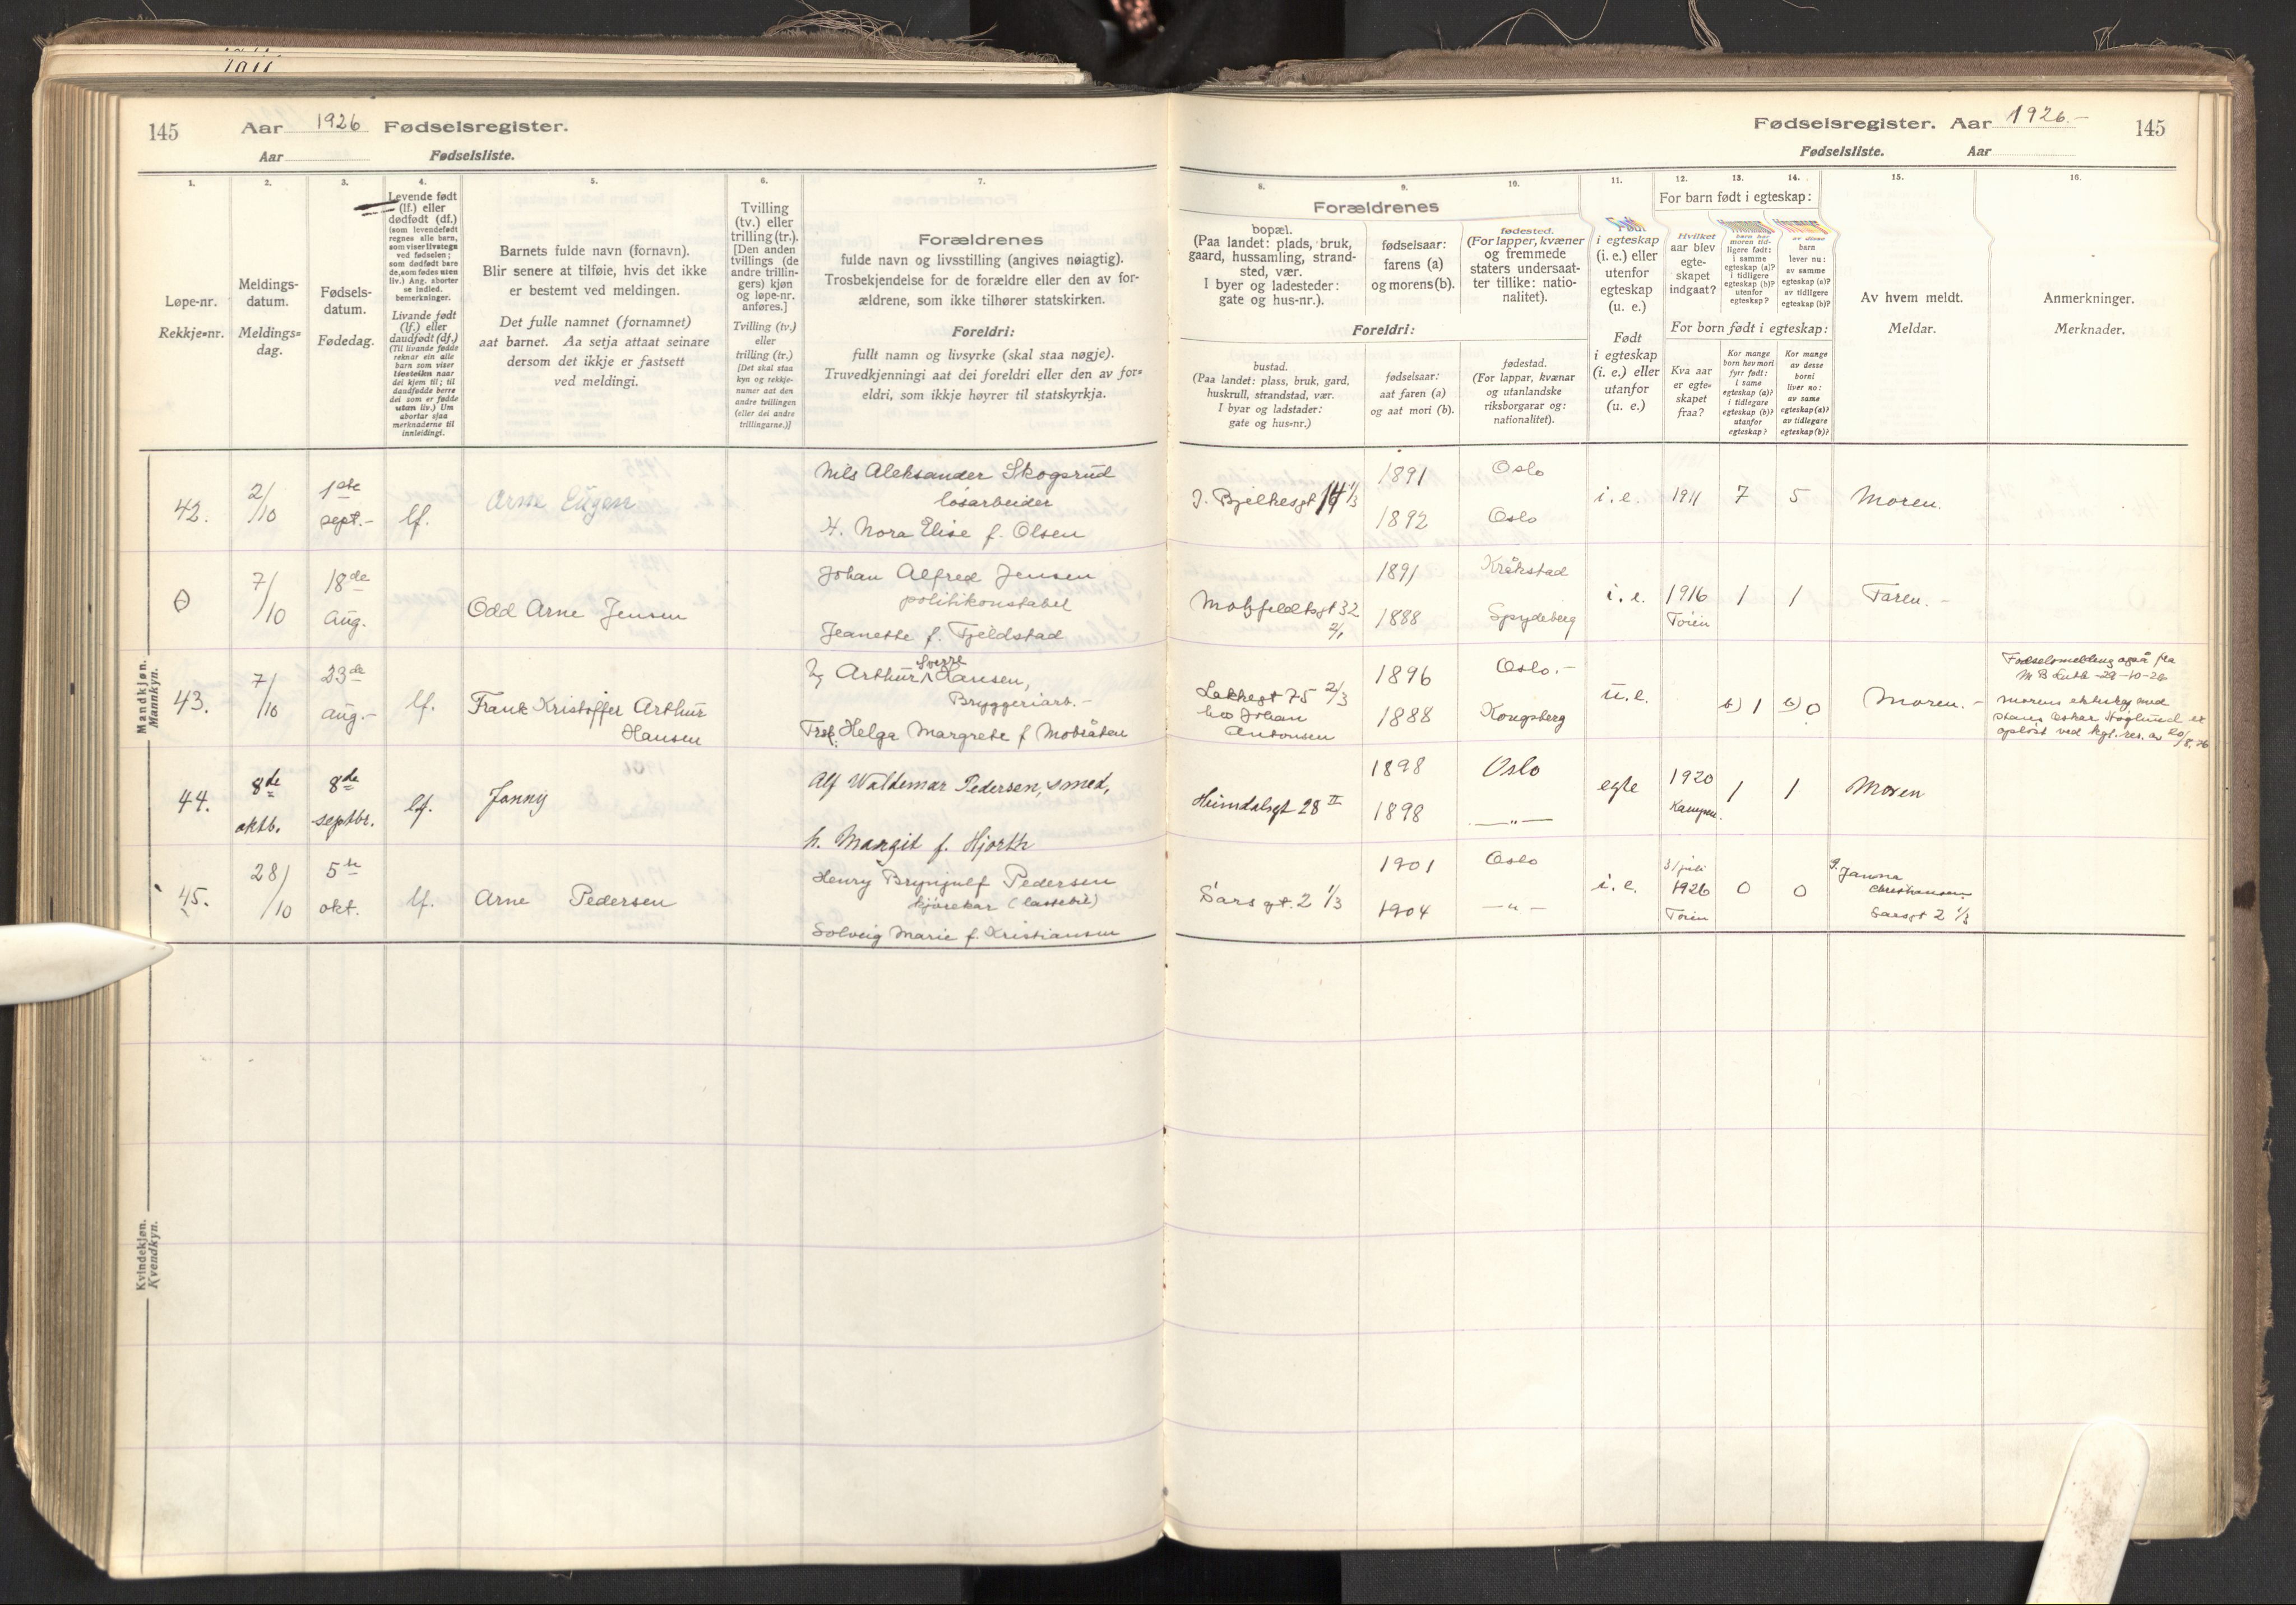 145
Aar 1926 Fødselsregister.
Aar Fødselsliste.
1.
2.
3.
4.
5.
6.
7.
Løpe-nr.
Rekkje=nr.
Meldings-
datum.
Meldings=
dag.
Fødsels-
datum.
Fødedag.
Levende født
(lf.) eller
dødfødt (df.)
(som levendefødt
regnes alle barn,
som viser livstegn
ved fødselen;
som dødfødt bare
de, som fødes uten
liv.) Ang. aborter
se indled.
bemerkninger.
Livande født
(lf.) eller
daudfødt (df.)
(Til livande fødde
reknar ein alle
barn som viser
livsteikn naar
dei kjem til; til
daudfødde berre
dei som er fødde
utan liv.) Um
abortar sjaa
merknaderne til
innleidingi.
Barnets fulde navn (fornavn).
Blir senere at tilføie, hvis det ikke
er bestemt ved meldingen.
Det fulle namnet (fornamnet)
aat barnet. Aa setja attaat seinare
dersom det ikkje er fastsett
ved meldingi.
Tvilling
(tv.) eller
trilling (tr.).
[Den anden
tvillings (de
andre trillin-
gers) kjøn
og løpe-nr.
anføres.]
Tvilling (tv.)
eller
trilling (tr.)
[Det skal staa
kyn og rekkje-
numer aat den
andre tvillingen
(eller dei andre
trillingarne.)]
Forældrenes
fulde navn og livsstilling (angives nøiagtig).
Trosbekjendelse for de forældre eller den av for-
ældrene, som ikke tilhører statskirken.
Foreldri:
fullt namn og livsyrke (skal staa nøgje).
Truvedkjenningi aat dei foreldri eller den av for=
eldri, som ikkje høyrer til statskyrkja.
Mandkjøn.
Mannkyn.
Kvindekjøn.
Kvendkyn.
42.
2/10
1ste
sept.-
lf.
Arne Eugen
Nils Aleksander Skogsrud
løsarbeider
H. Nora Elise f. Olsen
0
7/10
18de
Aug.
Odd Arne Jensen
Johan Alfred Jensen
politikonstabel
Jeanette f. Fjeldstad
43.
7/10
23de
aug.-
lf.
Frank Kristoffer Arthur
Hansen
Arthur Sverre Hansen,
Bryggeriarb.-
Helga Margrete f
44.
8de
oktb.
8de
septbr.
lf.
Jonny
Alf Waldemar Pedersen, smed,
h. Margit f. Hjorth
45.
28/10
5te
okt.
lf.
Arne Pedersen
Henry Brynjulf Pedersen
kjørekar (lastebil)
Solveig Marie f. Kristiansen
Fødselsregister. Aar 1926.-
145
Fødselsliste. Aar
8.
9.
10.
11.
12.
13.
14.
15.
16.
Forældrenes
bopæl.
(Paa landet: plads, bruk,
gaard, hussamling, strand-
sted, vær.
I byer og ladesteder:
gate og hus-nr.).
fødselsaar:
farens (a)
og morens (b).
fødested.
(For lapper, kvæner
og fremmede
staters undersaat-
ter tillike: natio-
nalitet).
Foreldri:
bustad.
(Paa landet: plass, bruk, gard,
huskrull, strandstad, vær.
I byar og ladstader:
gate og hus=nr.)
fødselsaar:
aat faren (a)
og aat mori (b).
fødestad.
(For lappar, kvænar
og utanlandske
riksborgarar og:
nationalitet).
Født
i egteskap
(i. e.) eller
utenfor
egteskap
(u. e.)
Født
i egteskap
(i. e.) eller
utanfor
(u. e.)
For barn født i egteskap:
Hvilket
aar blev
egte-
skapet
indgaat?
Hvormange
barn har
moren tid-
ligere født:
i samme
egteskap (a)?
i tidligere
egteskap (b)?
utenfor
egteskap?
Hvormange
av disse
barn
lever nu:
av samme
egteskap (a)?
av tidligere
egteskap (b)?
For born født i egteskap:
Kva aar
er egte=
skapet
fraa?
Kor mange
born hev mori
fyrr født:
i same
egteskap (a)?
i tidlegare
egteskap (b)?
utanfor
egteskap?
Kor mange
av desse
borni
liver no:
av same
egteskap (a)?
av tidlegare
egteskap (b)?
Av hvem meldt.
Meldar.
Anmerkninger.
Merknader.
J. Bjelkesgt 14 1/3
1891
1892
Oslo
Oslo
i. e.
1911
7
5
Moren.
Motzfeldtsgt 32
2/1
1891
1888
Kråkstad
Spydeberg
i. e.
1916
Tøien
1
1
Faren.-
Lakkegt 75 2/3
hos Johan
Antonsen
1896
1888
Oslo.-
Kongsberg
u. e.
b) 1
b) 0
Moren.-
Fødselsmelding også fra
-29-10-26
morens ekteskap med
Oskar Høglund er
opløst ved kgl. res. av 20/8.26
Heimdalsgt 28 II
1898
1898
Oslo
—„—
egte
1920
Kampen.
1
1
Moren
Sarsgt. 2 1/3
1901
1904
Oslo
—„—
i. e.
31/juli
1926
Tøien
0
0
J. Janna
Christiansen
Sarsgt 2 1/3